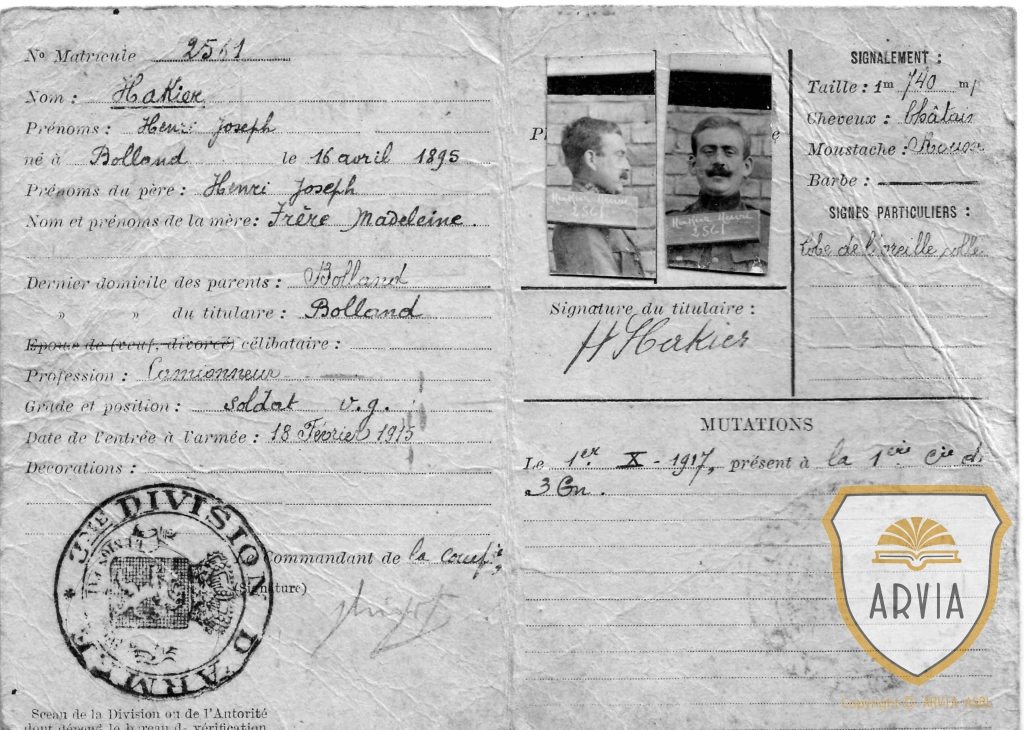 No Matricule 2561
Nom : Hakier
Prénoms : Henri Joseph
né à Bolland le 16 avril 1895
Prénoms du père : Henri Joseph
Nom et prénoms de la mère : Frère Madeleine.
Dernier domicile des parents : Bolland
» » du titulaire : Bolland
Epoux de (veuf, divorcé) célibataire :
Profession : Camionneur
Grade et position : soldat v.g.
Date de l'entrée à l'armée : 18 Février 1915
Décorations :
Commandant de la
(Signature)
2me DIVISION D'ARMEE
Sceau de la Division ou de l'Autorité
dont dépend le bureau de vérification
2561
2561
Signature du titulaire :
H Hakier
SIGNALEMENT :
Taille : 1m 740 m/
Cheveux : Châtain
Moustache :
Barbe :
SIGNES PARTICULIERS :
lobe de l'oreille collé
MUTATIONS
Le 1er X - 1917, présent à la 1ère Cie du
3 Gn.
ARVIA
Copyright © ARVIA ASBL